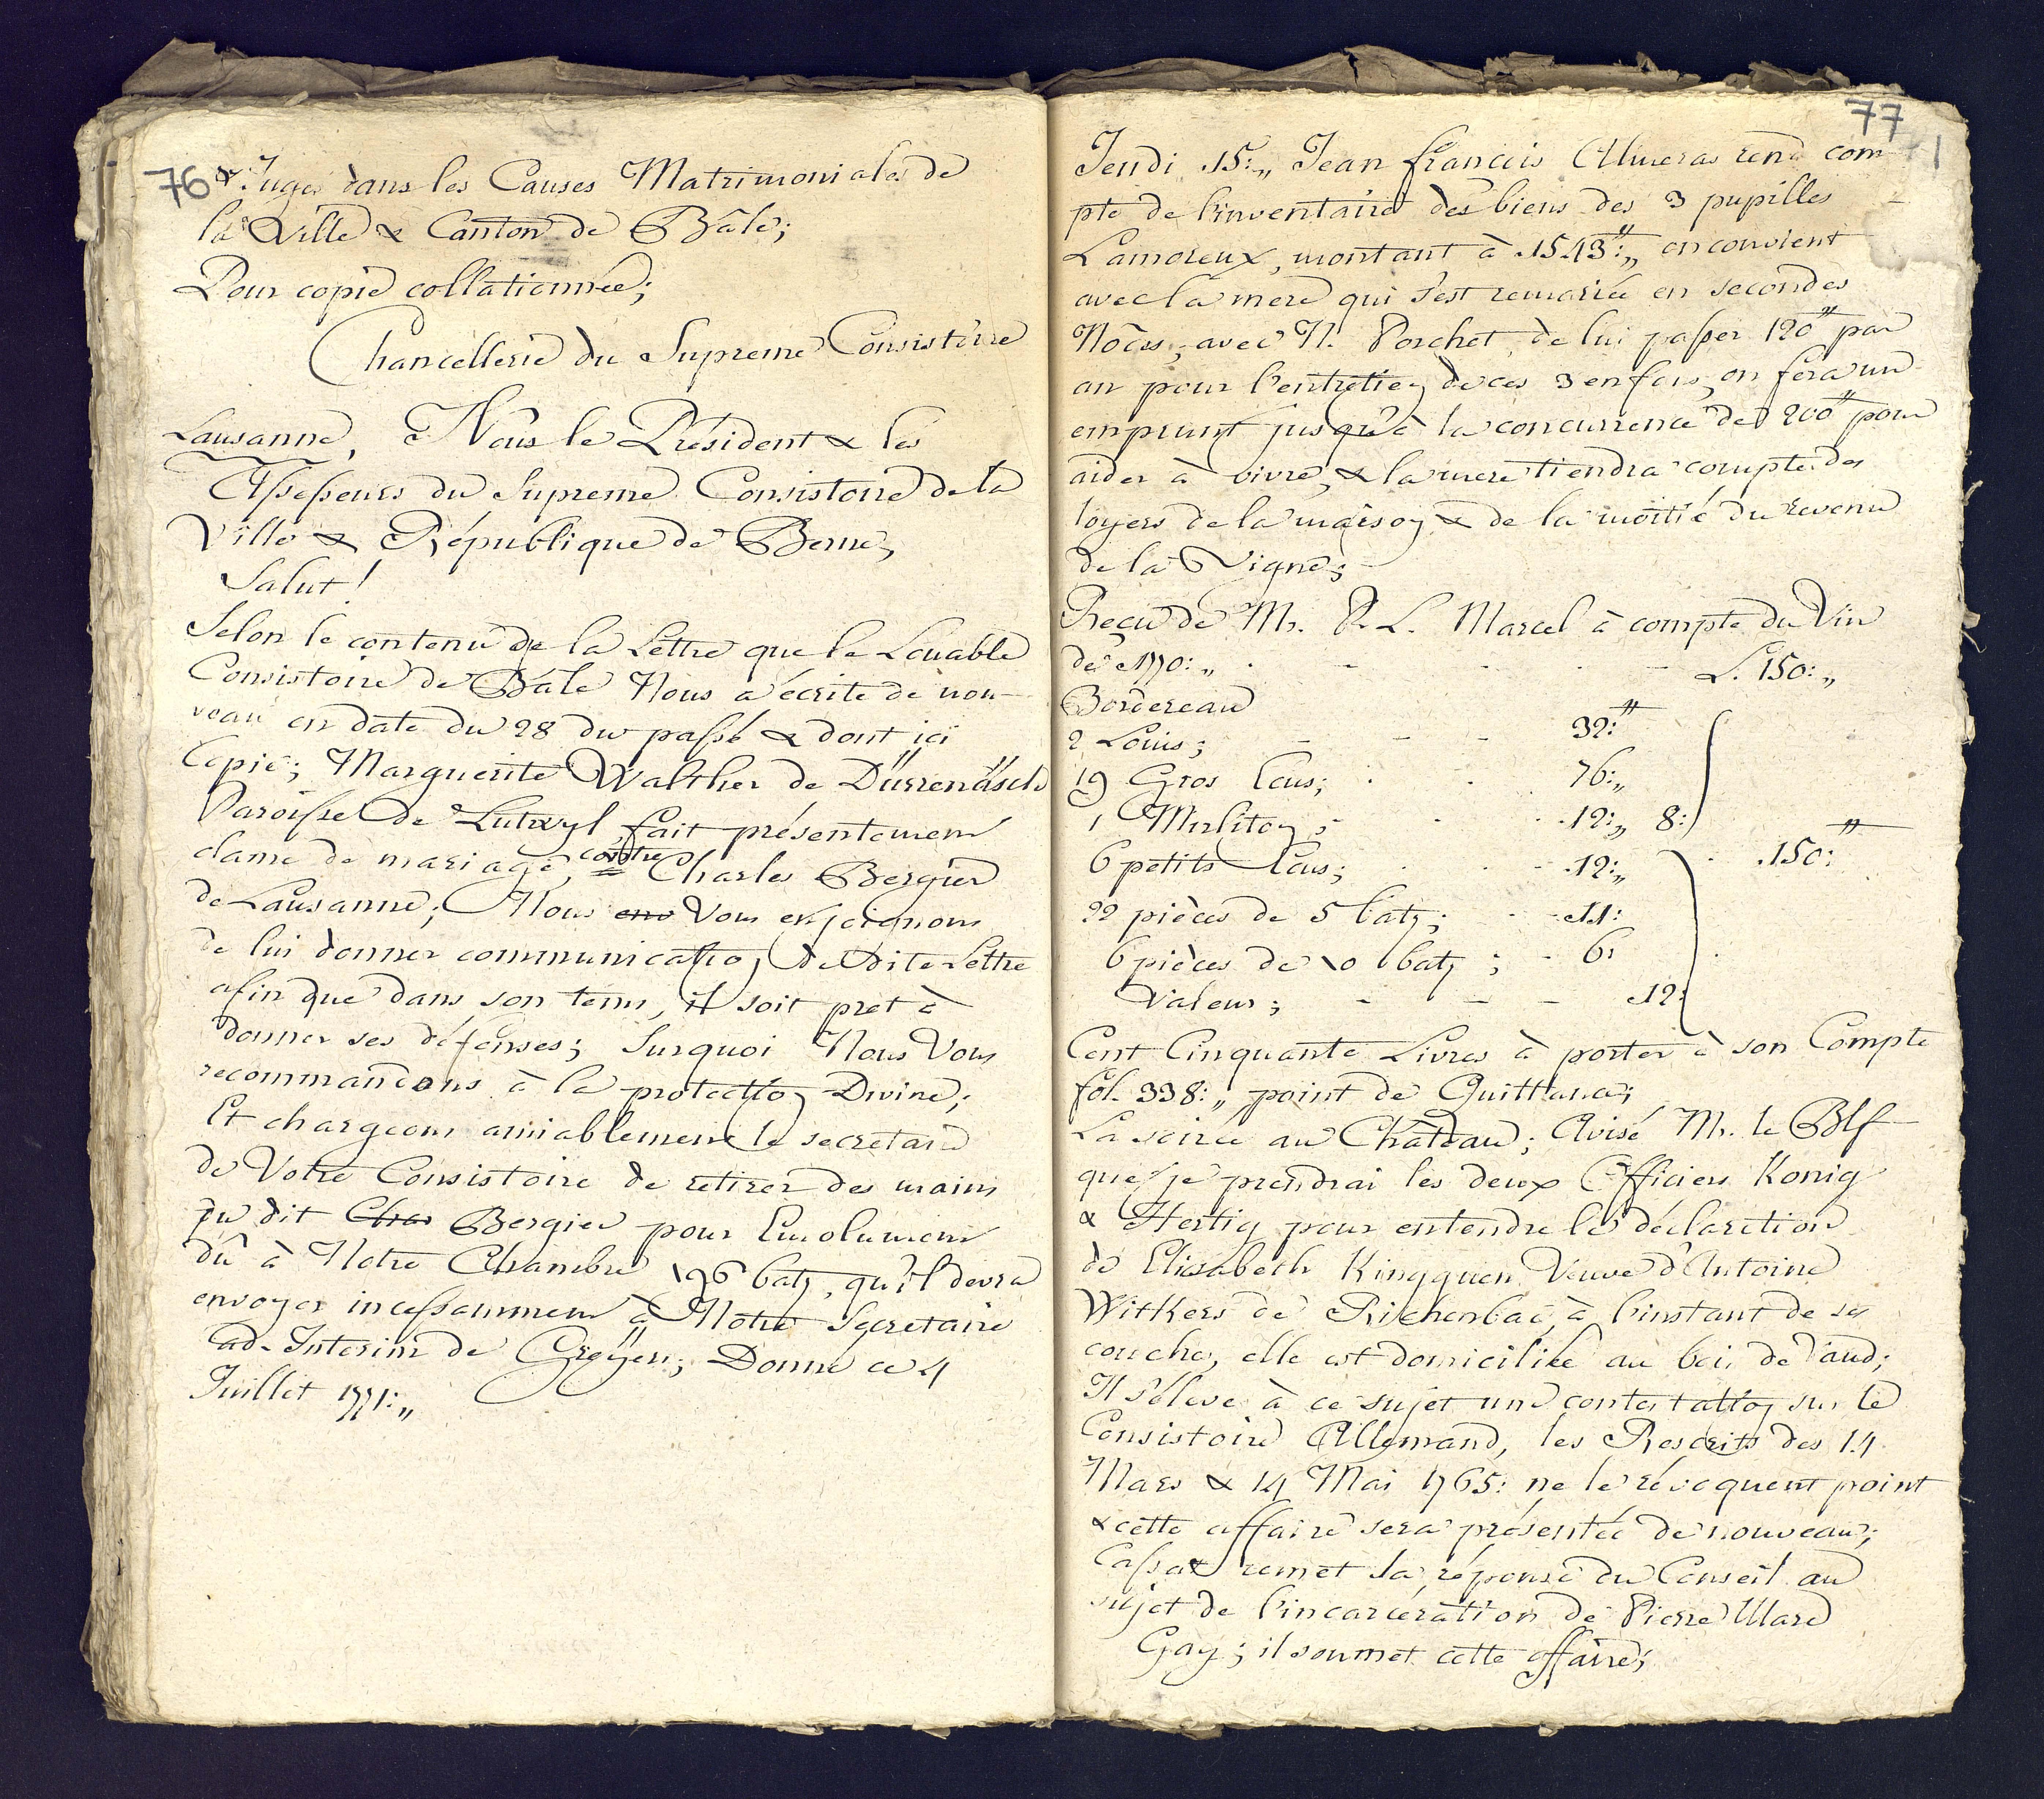 76
& Juges dans les Causes Matrimoniales de
la Ville & Canton de Bâle;
Pour copie collationnée;
Chancellerie du Supreme Consistoire
Lausanne, Nous le Président & les
Assesseurs du Supreme Consistoire de la
Ville & République de Berne,
Salut!
Selon le contenu de la Lettre que le Louable
Consistoire de Bâle Nous a écrite de nou-
veau en date du 28 du passé & dont ici
Copie; Marguerite Walther de Dürrenäsch
Paroisse de Lutwyl, fait présentement
clame de mariage, contre Charles Bergier
de Lausanne; Nous Vous enjoignons
de lui donner communication de dite Lettre
afin que dans son tems, il soit pret à
donner ses défenses; Surquoi Nous Vous
recommandons à la protection Divine;
Et chargeons amiablement le secretaire
de Votre Consistoire de retirer des mains
du dit Char Bergier pour Emolument
dû à Notre Chambre 196 batz, qu'il devra
envoyer incessamment à Notre Secretaire
ad-Interim de Greyerz; Donné ce 4
Juillet 1771:„
77
Jeudi 15:„ Jean francois Almeras rend com-
pte de l'inventaire des biens des 3 pupilles
Lamoreux, montant à 1543:„ on convient
avec la mere qui s'est remariée en secondes
Nôces, avec N. Porchet, de lui passer 120 par
an pour l'entretien de ces 3 enfans, on fera un
emprunt jusqu'à la concurrence de 200 pour
aider à vivre, & la mere tiendra compte des
loyers de la maison & de la moitié du revenu
de la Vigne;
Reçu de Mr. L. Marcel à compte du Vin
de 1770:„ L. 150:„
Bordereau
2 Louis; 32:
19 Gros Ecus; 76:„
1 Mirliton; 12:„ 8:
6 petits Ecus; 12:„ 150:
22 pièces de 5 batz; 11:
6 pièces de 10 batz; 6:
Valeur; 12:
Cent Cinquante Livres à porter à son Compte
fol. 338:„ point de Quittance;
La soirée au Château; Avisé Mr. le Blf
que je prendrai les deux Officiers Konig
& Hertig pour entendre la déclaration
de Elisabeth Kingguen Veuve d'Antoine
Witkers de Richenbac, à l'instant de ses
couches, elle est domiciliée au boi de Vaud;
Il s'éleve à ce sujet une contestation sur le
Consistoire Allemand, les Rescrits des 14
Mars & 14 Mai 1765: ne le révoquent point
& cette affaire sera présentée de nouveau;
Cassat remet la réponse du Conseil au
sujet de l'incarceration de Pierre Marc
Gay; il soumet cette affaire;